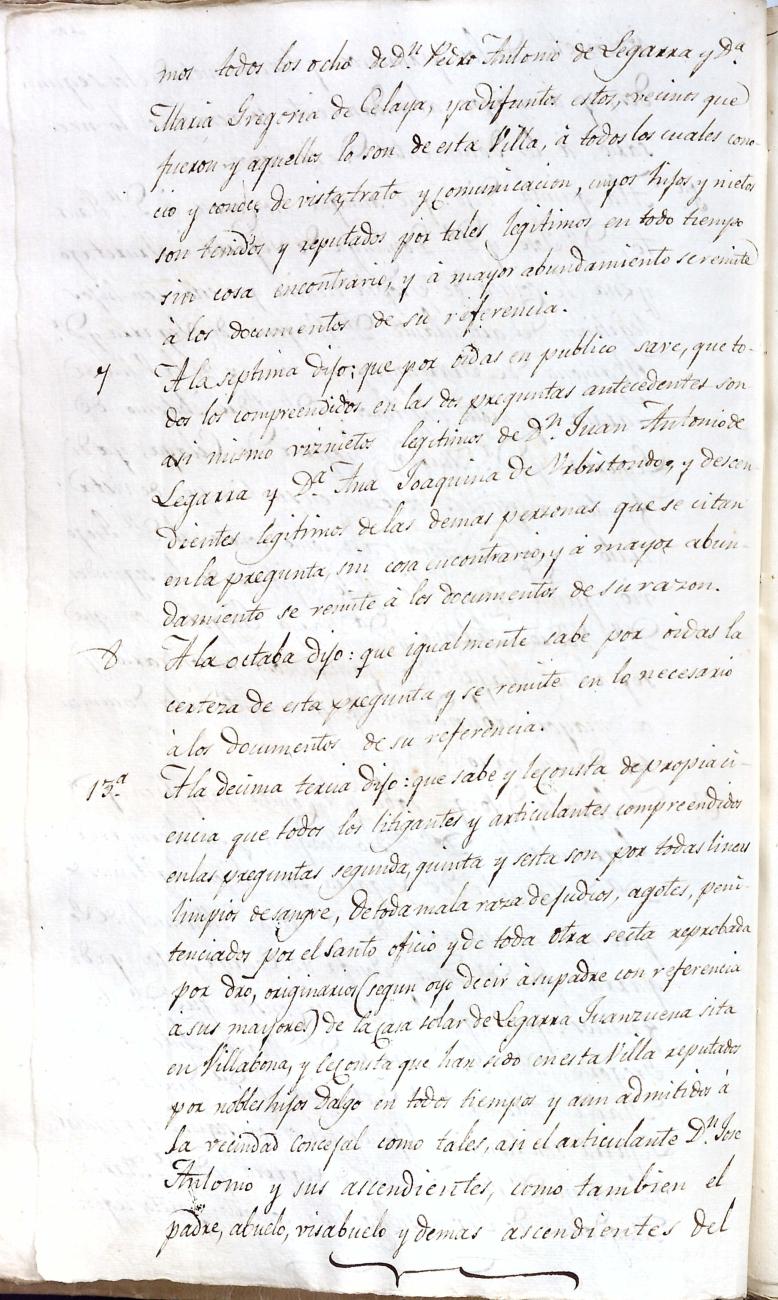 mos todos los ocho de d.n Pedro Antonio de Legarra y D.a
Maria Gregoria de Celaya, ya difuntos estos, vecinos que
fueron y aquellos lo son de esta Villa, à todos los cuales cono-
cio y conoce de vista, trato y comunicacion, cuyos hijos y nietos
son tenidos y reputados por tales legitimos en todo tiempo
sin cosa encontrario, y à mayor abundamiento se remite
à los documentos de su referencia.
7 A la septima dijo: que por oidas en publico save, que to-
dos los compreendidos en las dos preguntas antecedentes son
asi mismo viznietos legitimos de D.n Juan Antonio de
Legarra y D.a Ana Joaquina de Urbistondo, y descen-
dientes legitimos de las demas personas que se citan
en la pregunta, sin cosa encontrario, y à mayor abun-
damiento se remite à los documentos de su razon.
8 A la octaba dijo: que igualmente sabe por oidas la
certeza de esta pregunta y se remite en lo necesario
à los documentos de su referencia.
13.a A la decima tercia dijo: que sabe y le consta de propia ci-
encia que todos los litigantes y articulantes compreendidos
en las preguntas segunda, quinta y sesta son por todas lineas
limpios de sangre, de toda mala raza de judios, agotes, peni-
tenciados por el santo oficio y de toda otra secta reprobada
por dro, originarios (segun oyo decir à su padre con referencia
à sus mayores) de la casa solar de Legarra Juanzuena sita
en Villabona, y le consta que han sido en esta Villa reputados
por nobles hijos Dalgo en todos tiempos y aun admitidos à
la vecindad concejal como tales, asi el articulante D.n Jose
Antonio y sus ascendientes, como tambien el
padre, abuelo, visabuelo y demas ascendientes del